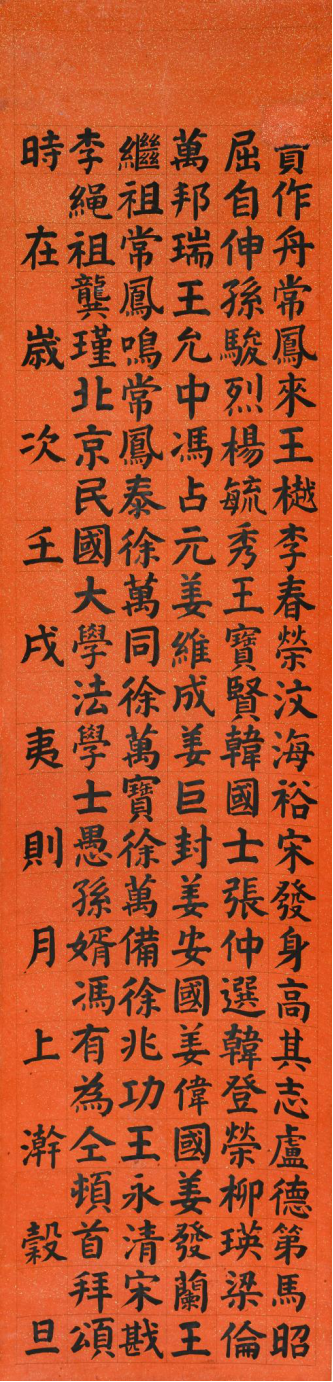 賁作舟常鳳來王樾李春榮汶海裕宋發身高其志盧德第馬昭
屈自伸孫駿烈楊毓秀王寶賢韓國士張仲選韓登榮柳瑛梁倫
萬邦瑞王允中馮占元姜維成姜巨封姜安國姜偉國姜發蘭王
繼祖常鳳鳴常鳳泰徐萬同徐萬寶徐萬備徐兆功王永清宋戡
李繩祖龔瑾北京民國大學法學士愚孫婿馮有為仝頓首拜頌
時在歲次壬戌夷則月上澣穀旦